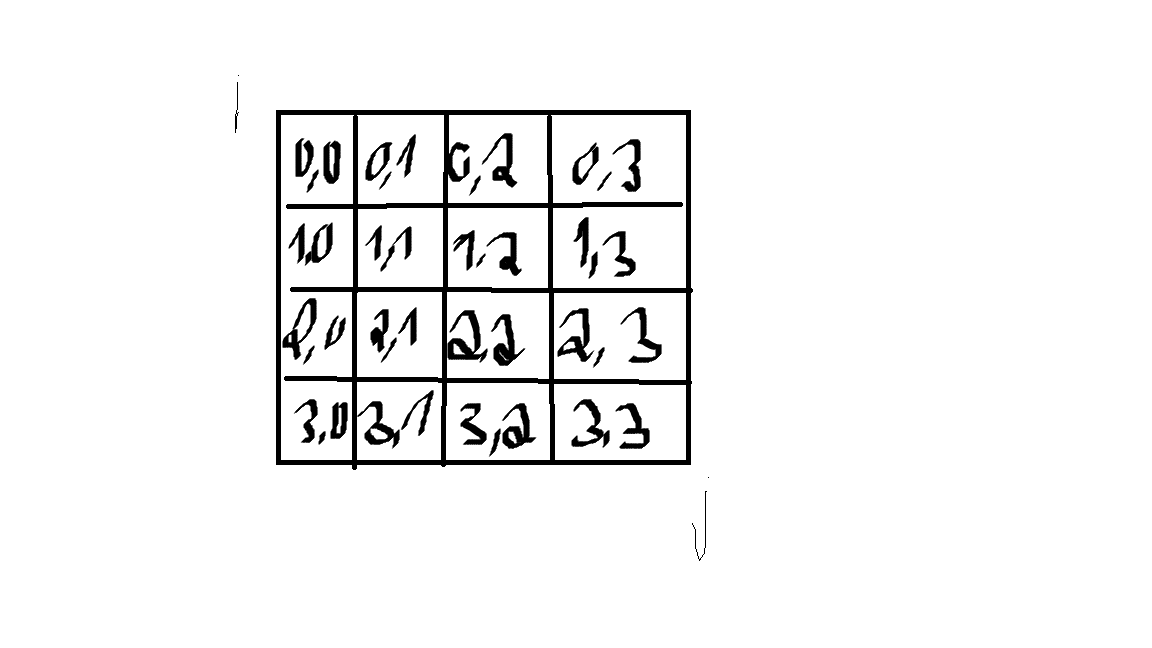 i
0,0 0,1 0,2 0,3
1,0 1,1 1,2 1,3
2,0 2,1 2,2 2,3
3,0 3,1 3,2 3,3
j